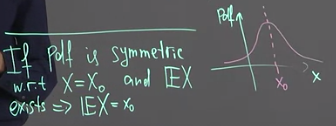 If Pdf is symmetric
w.r.t X=X₀ and 𝔼X
exists => 𝔼X=x₀
Pdf
x₀
x